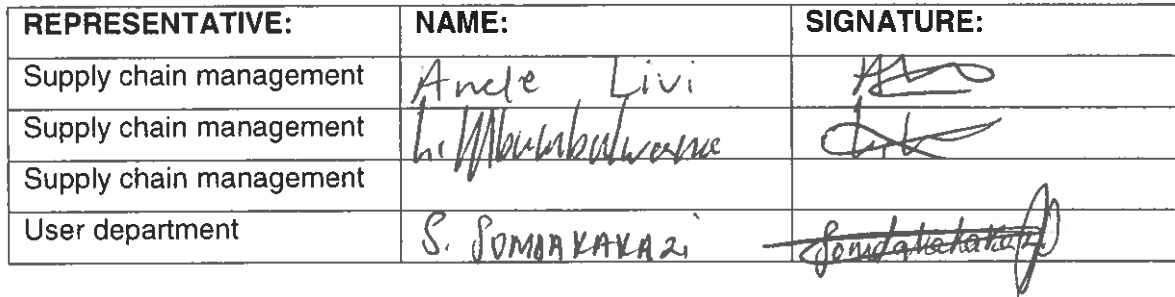 REPRESENTATIVE: NAME: SIGNATURE:
Supply chain management Ancle Livi
Supply chain management L. Mbulubulwana
Supply chain management
User department S. SOMDAKAKAZI Somdakakazi